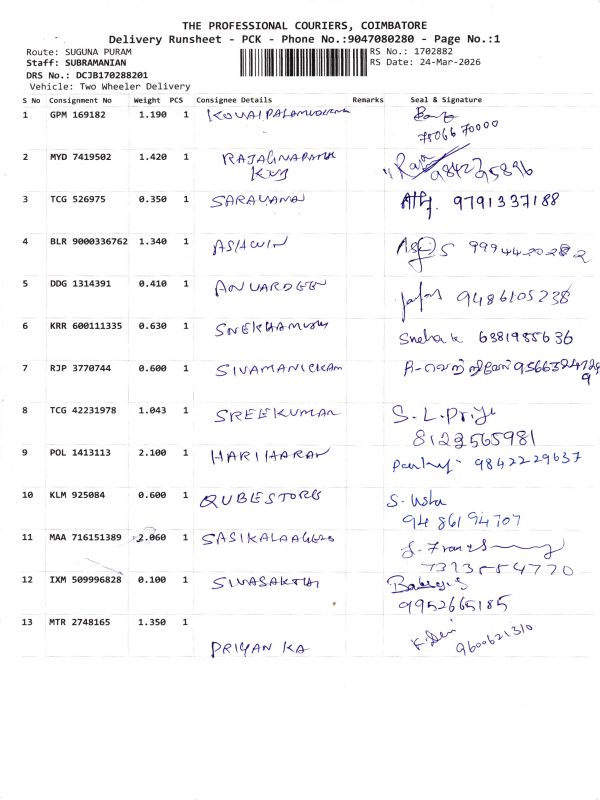 THE PROFESSIONAL COURIERS, COIMBATORE
Delivery Runsheet - PCK - Phone No.:9047080280 - Page No.:1
Route: SUGUNA PURAM RS No.: 1702882
Staff: SUBRAMANIAN RS Date: 24-Mar-2026
DRS No.: DCJB170288201
Vehicle: Two Wheeler Delivery
S No Consignment No Weight PCS Consignee Details Remarks Seal & Signature
1 GPM 169182 1.190 1
7506670000
2 MYD 7419502 1.420 1 Raja
9842795896
3 TCG 526975 0.350 1 SARAVANA 9791337188
4 BLR 9000336762 1.340 1 ASHWIN
5 DDG 1314391 0.410 1 ANVARDEEN 9486105238
6 KRR 600111335 0.630 1 Sneha k 6381985636
7 RJP 3770744 0.600 1 SIVAMANICKAM
8 TCG 42231978 1.043 1 SREEKUMAR S.L.Priya
8122565981
9 POL 1413113 2.100 1 HARIHARAN 9842229637
10 KLM 925084 0.600 1 QUBESTORE S. Usha
9486194707
11 MAA 716151389 2.060 1
7373554770
12 IXM 509996828 0.100 1 SIVASAKTHI
9952665185
13 MTR 2748165 1.350 1 K. Devi
9600621310
PRIYAN KA